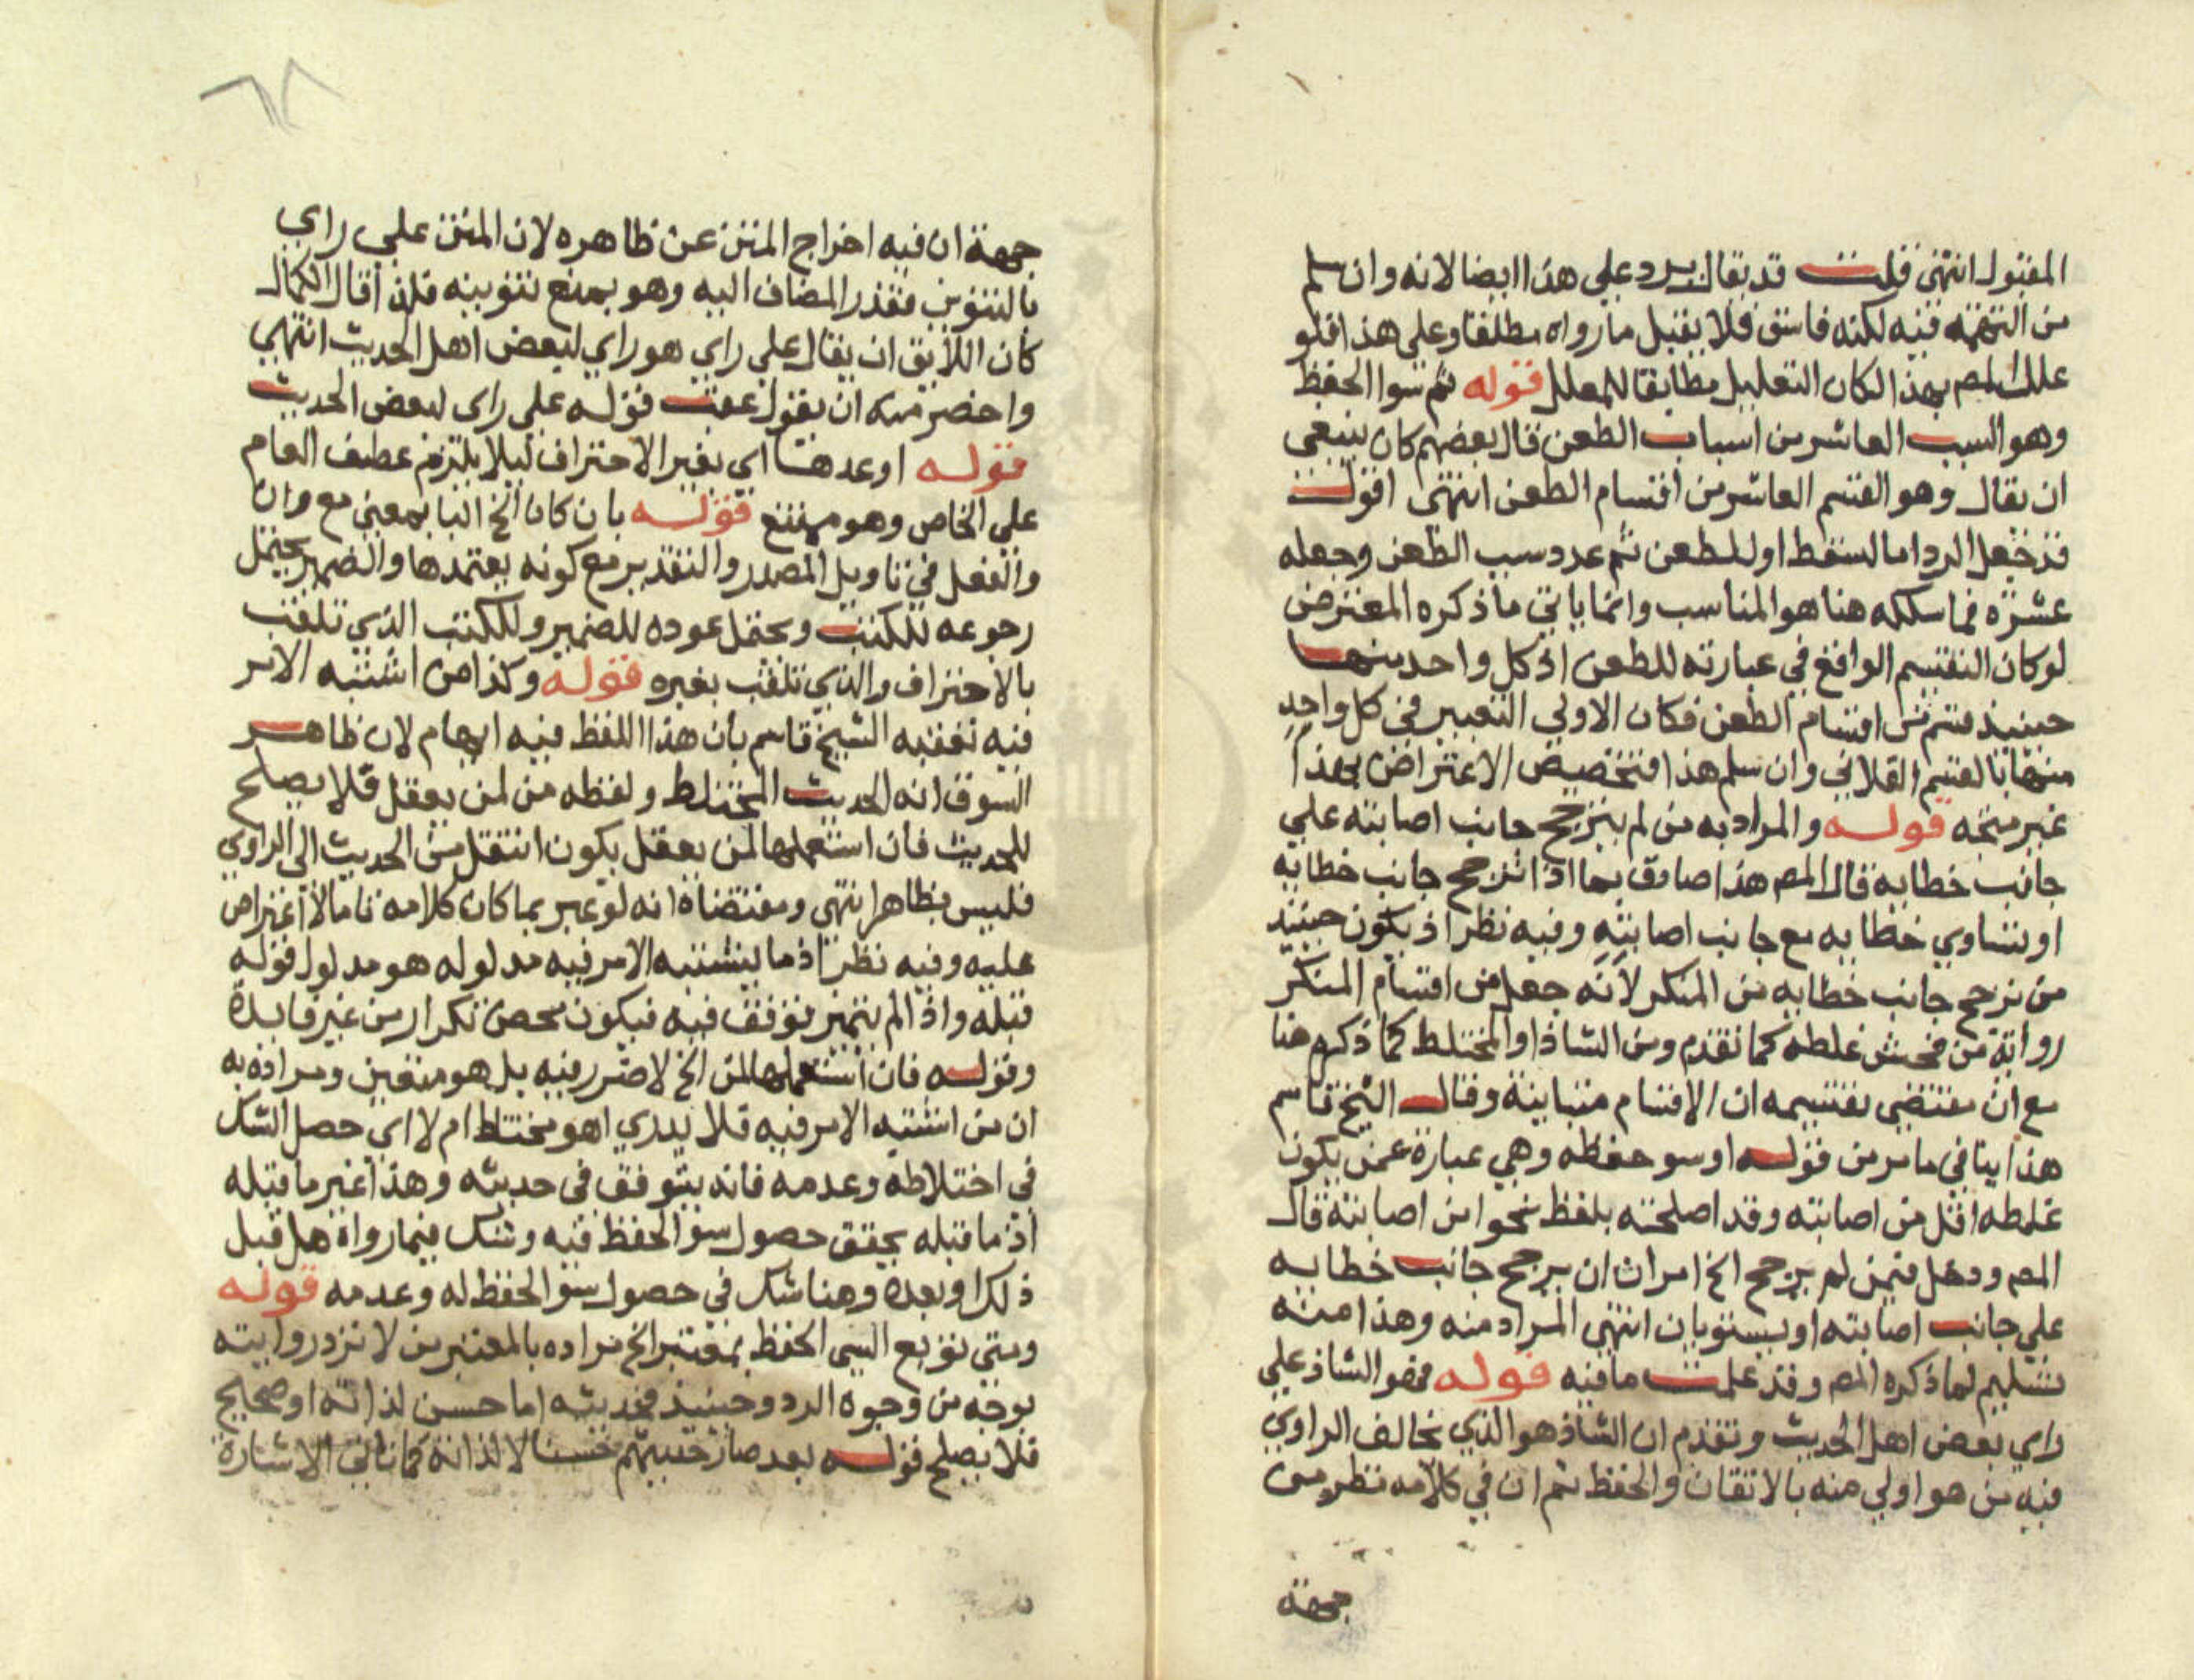 المقبول انتهى قلت قد يقال يرد على هذا ايضا لانه وان سلم
من التهمة فيه لكنه فاسق فلا يقبل ما رواه مطلقا وعلى هذا فلو
علل المص بهذا لكان التعليل مطابقا للمعلل قوله ثم سوا الحفظ
وهو السبب العاشر من اسباب الطعن قال بعضهم كان ينبغي
ان يقال وهو القسم العاشر من اقسام الطعن انتهى اقول
قد جعل الرد اما لسقط او للطعن ثم عدد سبب الطعن وجعله
عشرة فما سلكه هنا هو المناسب وانما ياتي ما ذكره المعترض
لو كان التقسيم الواقع في عبارته للطعن اذ كل واحد منها
حينئذ قسم من اقسام الطعن فكان الاولى التعبير في كل واحد
منها بالقسم الفلاني وان سلم هذا فتخصيص الاعتراض بهذا
غير متجه قوله والمراد به من لم يترجح جانب اصابته على
جانب خطايه قال المص هذا صادق بما اذا ترجح جانب خطايه
او تساوي خطايه مع جانب اصابته وفيه نظر اذ يكون حينئذ
من ترجح جانب خطايه من المنكر لانه جعل من اقسام المنكر
رواية من فحش غلطه كما تقدم ومن الشاذ او المختلط كما ذكره هنا
مع ان مقتضى تقسيمه ان الاقسام متباينة وقال الشيخ قاسم
هذا ينافي ما مر من قوله او سو حفظه وهي عبارة عمن يكون
غلطه اقل من اصابته وقد اصلحته بلفظ نحوا من اصابته قال
المص ودخل فيمن لم يرجح الخ امران ان يرجح جانب خطايه
على جانب اصابته او يستويان انتهى المراد منه وهذا منه
تسليم لما ذكره المص وقد علمت ما فيه قوله فهو الشاذ على
راي بعض اهل الحديث وتقدم ان الشاذ هو الذي يخالف الراوي
فيه من هو اولي منه بالاتقان والحفظ ثم ان في كلامه نظر من
جهة
جهة ان فيه اخراج المتن عن ظاهره لان المتن على راي
بالتنوين فقدر المضاف اليه وهو يمنع تنوينه فلذا قال الكمال
كان اللايق ان يقال على راي هو راي لبعض اهل الحديث انتهى
واخصر منه ان يقول عقب قوله على راي لبعض الحديث
قوله او عدمها اي بغير الاحتراق ليلا يلتزم عطف العام
على الخاص وهو ممتنع قوله بان كان الخ البا بمعنى مع وان
والفعل في تاويل المصدر والتقدير مع كونه يعتمدها والضمير يحتمل
رجوعه للكتب ويحتمل عوده للضمير وللكتب الذي تلفت
بالاحتراق والذي تلفت بغيره قوله وكذا من اشتبه الامر
فيه تعقبه الشيخ قاسم بان هذا اللفظ فيه ايهام لان ظاهر
السوق انه الحديث المختلط ولفظه من لمن يعقل فلا يصلح
للحديث فان استعملها لمن يعقل يكون انتقل من الحديث الى الراوي
فليس بظاهر انتهى ومقتضاه انه لو عبر بما كان كلامه تاما لا اعتراض
عليه وفيه نظر اذ ما يشتبه الامر فيه مدلوله هو مدلول قوله
قبله واذا لم يتميز توقف فيه فيكون محض تكرار من غير فايدة
وقوله فان استعملها لمن الخ لا ضرر فيه بل هو متعين ومراده به
ان من اشتبه الامر فيه فلا يدري اهو مختلط ام لا اي حصل الشك
في اختلاطه وعدمه فانه يتوقف في حديثه وهذا غير ما قبله
اذ ما قبله يحقق حصول سو الحفظ فيه وشك فيما رواه هل قبل
ذلك او بعده وهنا شك في حصول سو الحفظ له وعدمه قوله
ومتى توبع السي الحفظ بمعتبر الخ مراده بالمعتبر من لا ترد روايته
بوجه من وجوه الرد وحينئذ فحديثه اما حسن لذاته او صحيح
فلا يصلح قوله بعد صار حديثهم حسنا لا لذاته كما تاتي الاشارة